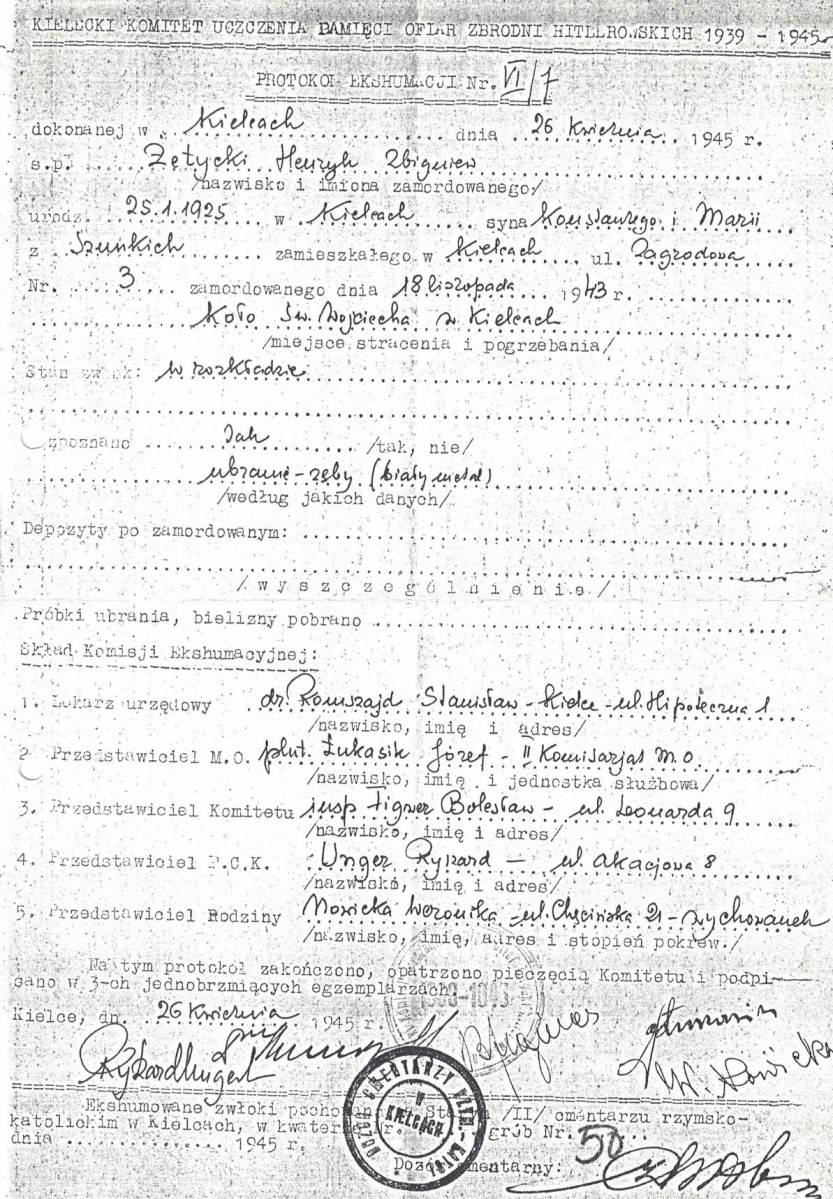 KIELECKI KOMITET UCZCZENIA PAMIĘCI OFIAR ZBRODNI HITLEROWSKICH 1939 - 1945
PROTOKOŁ EKSHUMACJI Nr. VI/7
dokonanej w Kielcach dnia 26 Kwietnia 1945 r.
s.p. Zętycki Henryk Zbigniew
/nazwisko i imiona zamordowanego/
urodz. 25.1.1925 w Kielcach syna Konstantego i Marii
z zamieszkałego w Kielcach ul. Zagrodowa
Nr. 3 zamordowanego dnia 18 listopada 1943 r.
Koło Św. Wojciecha w Kielcach
/miejsce stracenia i pogrzebania/
Stan zwłok: w rozkładzie
zpoznano Tak /tak, nie/
ubranie - zęby (biały metal)
/według jakich danych/
Depozyty po zamordowanym:
/wyszczególnienie/
Próbki ubrania, bielizny pobrano
Skład Komisji Ekshumacyjnej:
1. Lekarz urzędowy dr. Romszajd Stanisław - Kielce - ul. Hipoteczna 1
/nazwisko, imię i adres/
2 Przedstawiciel M.O. plut. Łukasik Józef - II Komisarjat M.O
/nazwisko, imię i jednostka służbowa/
3. Przedstawiciel Komitetu insp Figwer Bolesław - ul. Leonarda 9
/nazwisko, imię i adres/
4. Przedstawiciel P.C.K. Unger Ryszard - ul. Akacjowa 8
/nazwisko, imię i adres/
5. Przedstawiciel Rodziny Nowicka Weronika - ul. Chęcińska 21 - wychowanek
/nazwisko, imię, adres i stopień pokrew./
Na tym protokół zakończono, opatrzono pieczęcią Komitetu i podpi-
sano w 3-ch jednobrzmiących egzemplarzach
1939-1945
Kielce, dn. 26 Kwietnia 1945 r.
W. Nowicka
Ekshumowane zwłoki na /II/ cmentarzu rzymsko-
katolickim w Kielcach, w kwaterze Nr. grób Nr. 50
dnia 1945 r.
DOZÓR CMENTARZY W KIELCACH
Dozór cmentarny: